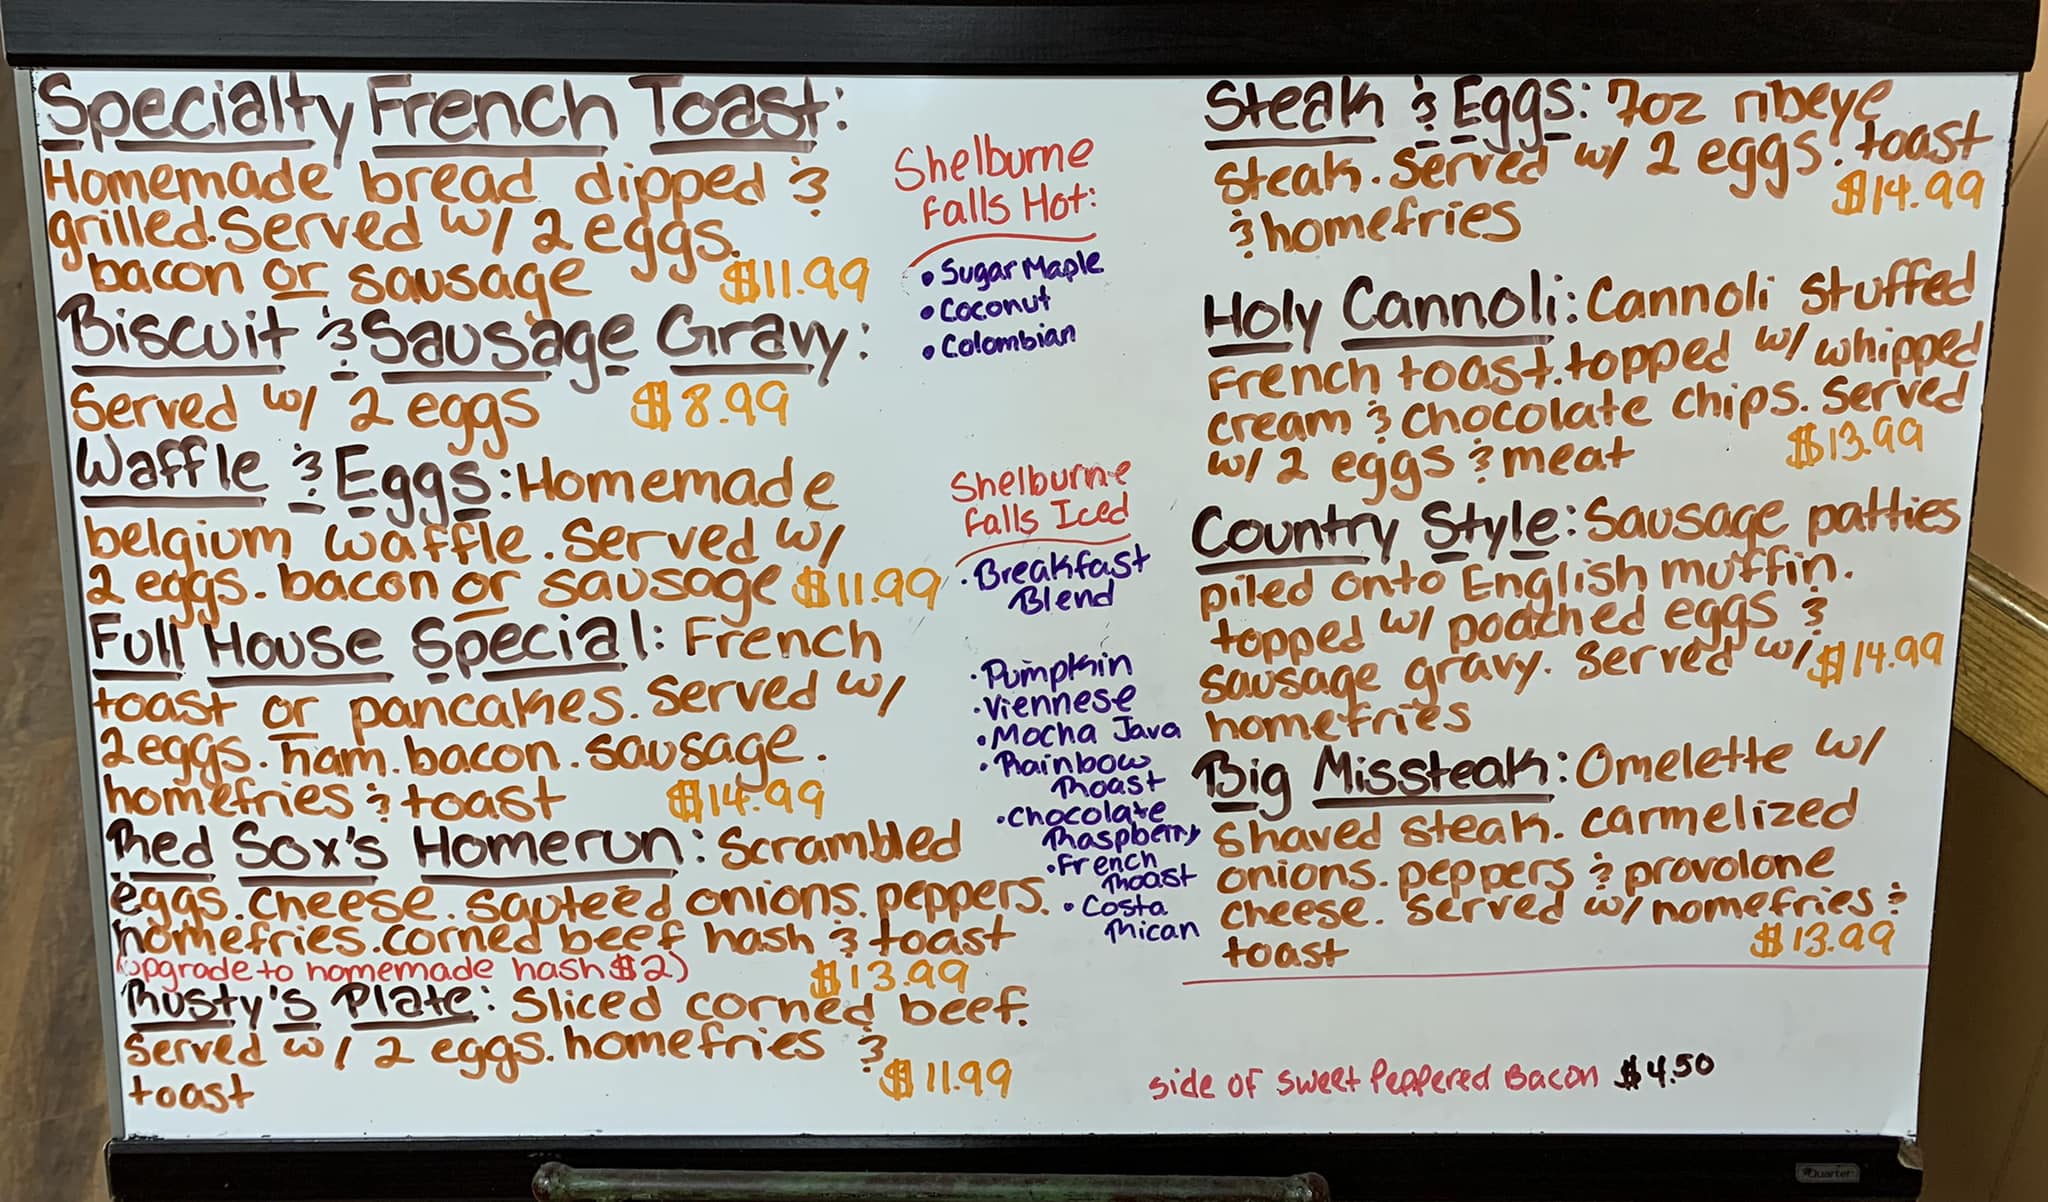 Specialty French Toast:
Homemade bread dipped &
grilled. Served w/ 2 eggs.
bacon or sausage $11.99
Biscuit & Sausage Gravy:
Served w/ 2 eggs $8.99
Waffle & Eggs: Homemade
belgium waffle. Served w/
2 eggs. bacon or sausage $11.99
Full House Special: French
toast or pancakes. Served w/
2 eggs. ham. bacon. sausage.
homefries & toast $14.99
Red Sox's Homerun: Scrambled
eggs. cheese. sauteed onions. peppers.
homefries. corned beef hash & toast
(upgrade to homemade hash $2) $13.99
Rusty's Plate: Sliced corned beef.
Served w/ 2 eggs. homefries &
toast $11.99
Shelburne
Falls Hot:
• Sugar Maple
• Coconut
• Colombian
Shelburne
Falls Iced
• Breakfast
Blend
• Pumpkin
• Viennese
• Mocha Java
• Rainbow
Roast
• Chocolate
Raspberry
• French
Roast
• Costa
Rican
Steak & Eggs: 7oz ribeye
steak. Served w/ 2 eggs. toast
& homefries $14.99
Holy Cannoli: Cannoli stuffed
French toast. topped w/ whipped
cream & chocolate chips. Served
w/ 2 eggs & meat $13.99
Country Style: Sausage patties
piled onto English muffin.
topped w/ poached eggs &
sausage gravy. Served w/ $14.99
homefries
Big Missteak: Omelette w/
shaved steak. carmelized
onions. peppers & provolone
cheese. Served w/ homefries &
toast $13.99
Side of Sweet Peppered Bacon $4.50
Quartet